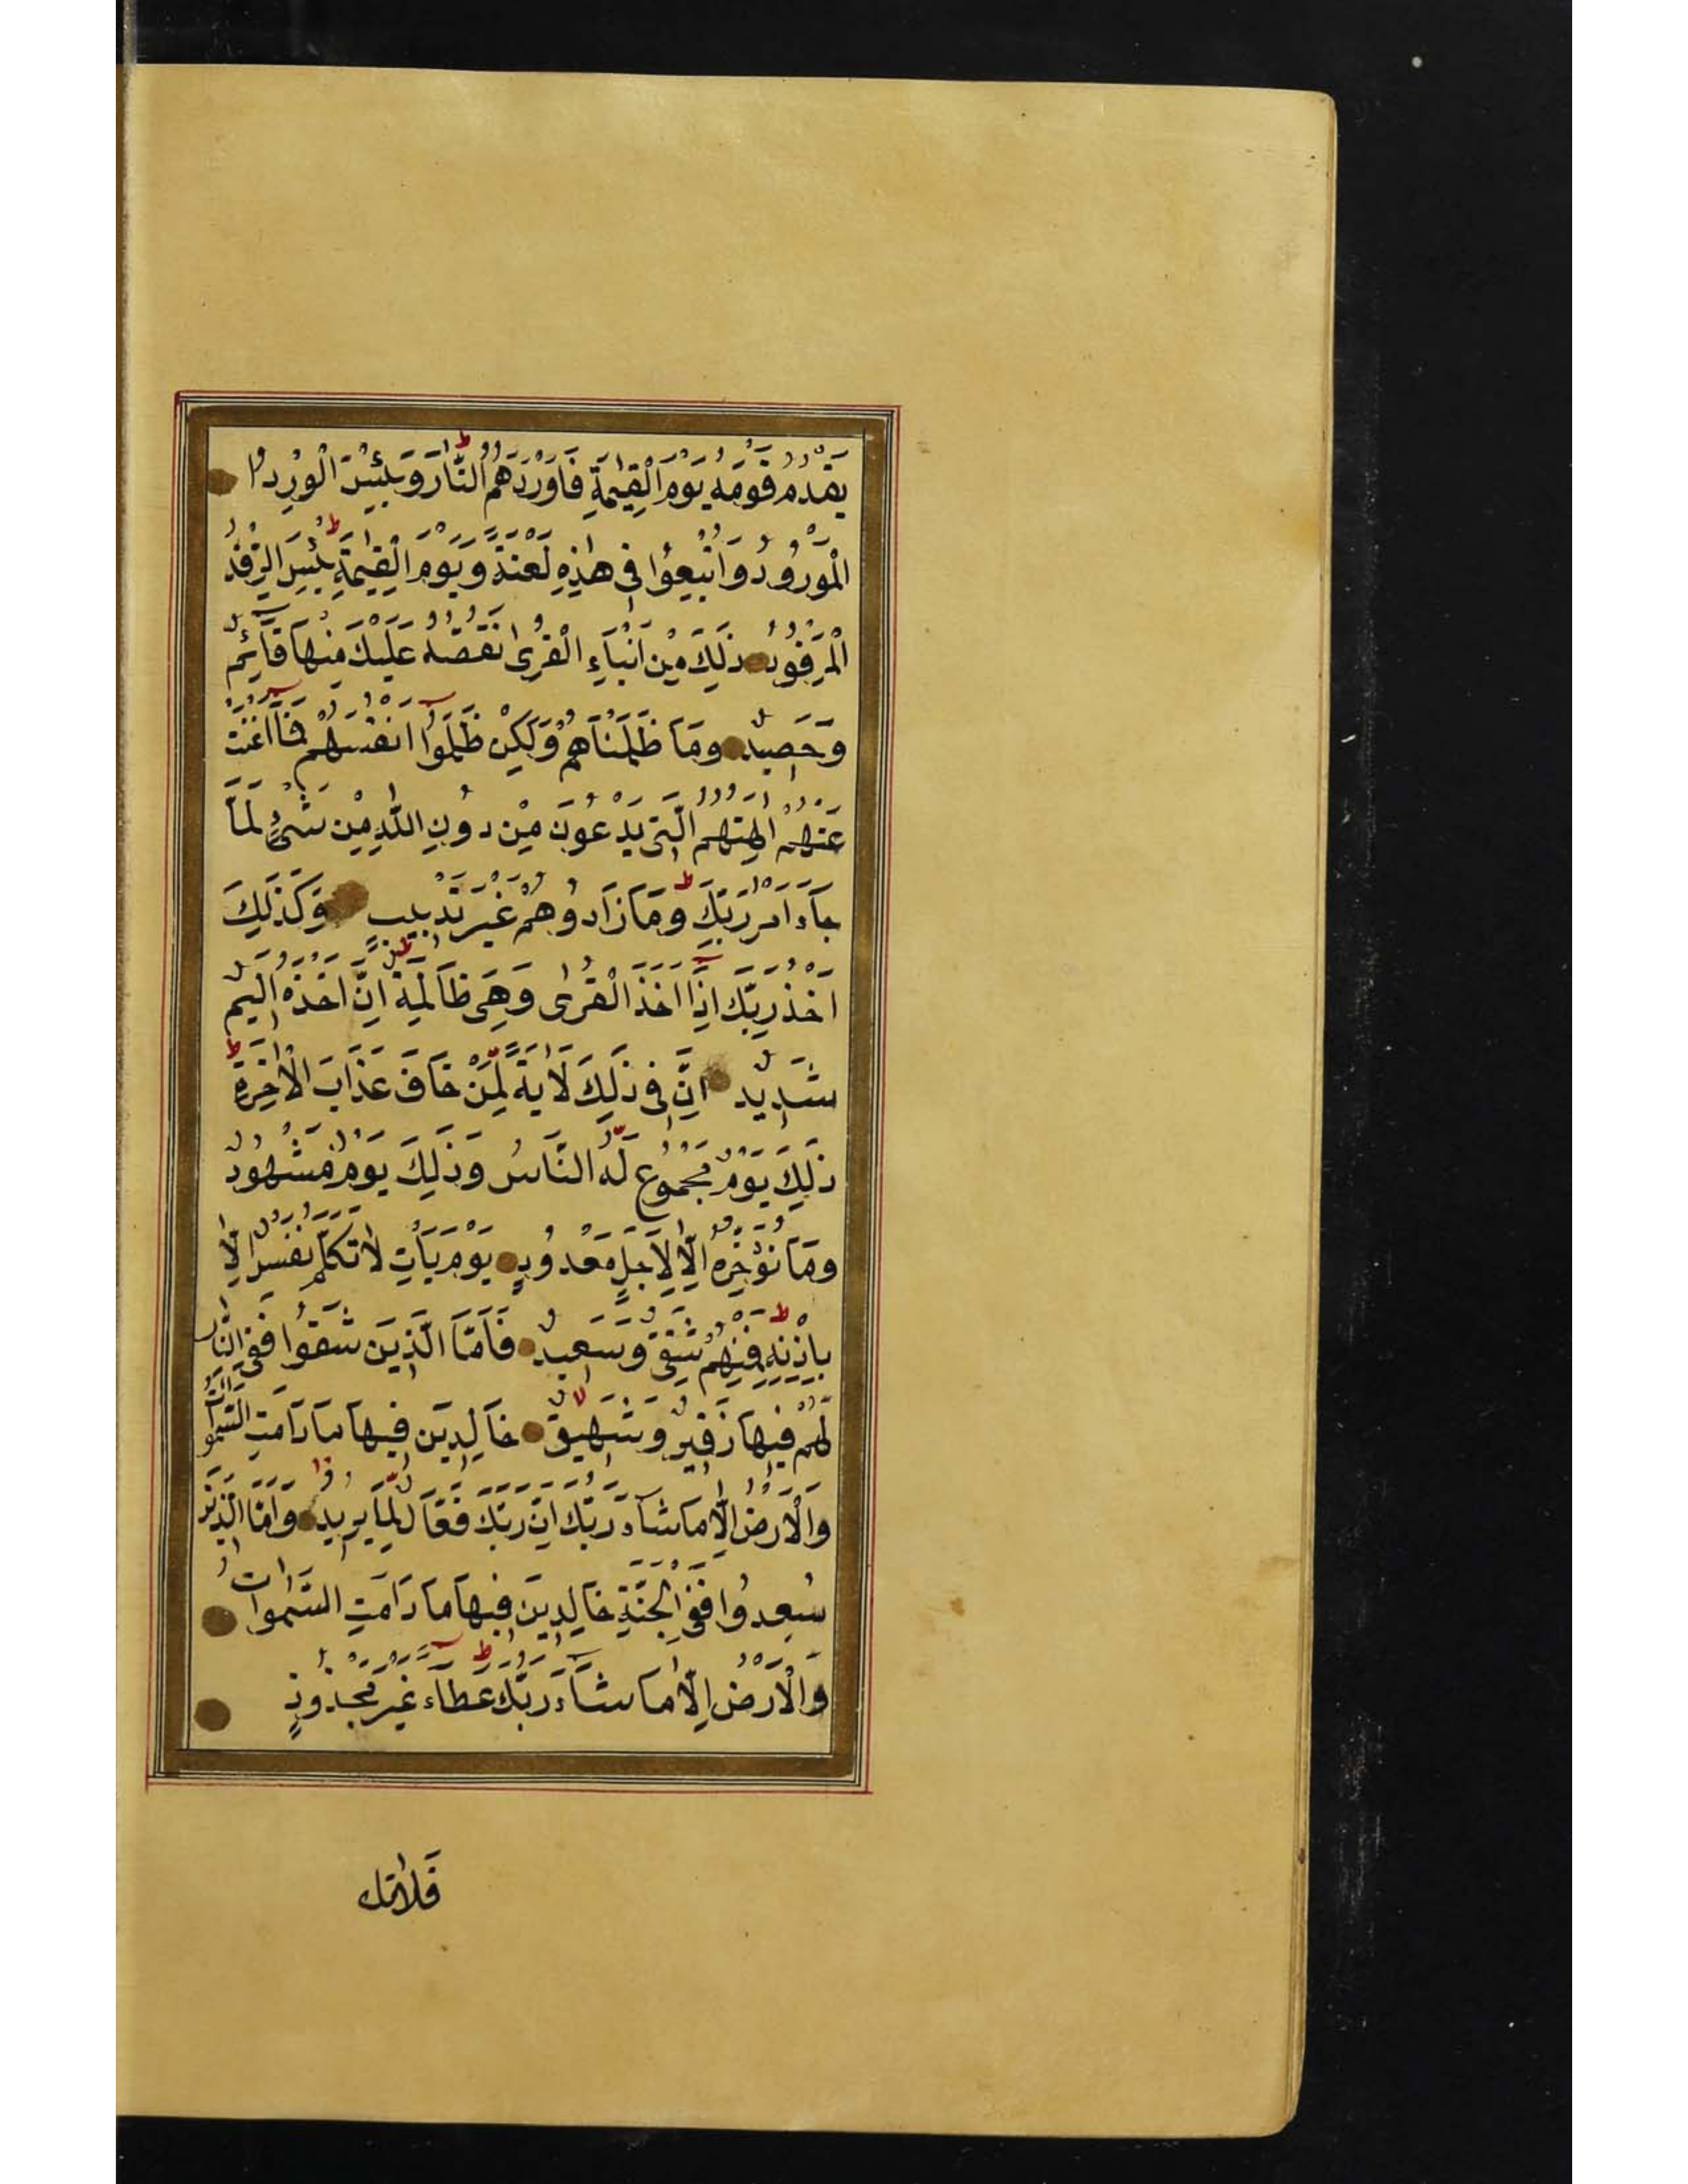 يَقْدُمُ قَوْمَهُ يَوْمَ الْقِيٰمَةِ فَاَوْرَدَهُمُ النَّارَ وَبِئْسَ الْوِرْدُ
الْمَوْرُوْدُ وَاُتْبِعُوْا فِى هٰذِهِ لَعْنَةً وَيَوْمَ الْقِيٰمَةِ بِئْسَ الرِّفْدُ
الْمَرْفُوْدُ ذٰلِكَ مِنْ اَنْبَآءِ الْقُرٰى نَقُصُّهُ عَلَيْكَ مِنْهَا قَآئِمٌ
وَحَصِيْدٌ وَمَا ظَلَمْنَاهُمْ وَلٰكِنْ ظَلَمُوْا اَنْفُسَهُمْ فَمَآ اَغْنَتْ
عَنْهُمْ اٰلِهَتُهُمُ الَّتِى يَدْعُوْنَ مِنْ دُوْنِ اللّٰهِ مِنْ شَىْءٍ لَمَّا
جَآءَ اَمْرُ رَبِّكَ وَمَا زَادُوْهُمْ غَيْرَ تَتْبِيْبٍ وَكَذٰلِكَ
اَخْذُ رَبِّكَ اِذَآ اَخَذَ الْقُرٰى وَهِىَ ظَالِمَةٌ اِنَّ اَخْذَهُ اَلِيْمٌ
شَدِيْدٌ اِنَّ فِى ذٰلِكَ لَاٰيَةً لِمَنْ خَافَ عَذَابَ الْاٰخِرَةِ
ذٰلِكَ يَوْمٌ مَجْمُوْعٌ لَهُ النَّاسُ وَذٰلِكَ يَوْمٌ مَشْهُوْدٌ
وَمَا نُؤَخِّرُهُ اِلَّا لِاَجَلٍ مَعْدُوْدٍ يَوْمَ يَأْتِ لَا تَكَلَّمُ نَفْسٌ اِلَّا
بِاِذْنِهِ فَمِنْهُمْ شَقِىٌّ وَسَعِيْدٌ فَاَمَّا الَّذِيْنَ شَقُوْا فَفِى النَّارِ
لَهُمْ فِيْهَا زَفِيْرٌ وَشَهِيْقٌ خَالِدِيْنَ فِيْهَا مَا دَامَتِ السَّمٰوَاتُ
وَالْاَرْضُ اِلَّا مَا شَآءَ رَبُّكَ اِنَّ رَبَّكَ فَعَّالٌ لِمَا يُرِيْدُ وَاَمَّا الَّذِيْنَ
سُعِدُوْا فَفِى الْجَنَّةِ خَالِدِيْنَ فِيْهَا مَا دَامَتِ السَّمٰوَاتُ
وَالْاَرْضُ اِلَّا مَا شَآءَ رَبُّكَ عَطَآءً غَيْرَ مَجْذُوْذٍ
فَلَاتَكُ